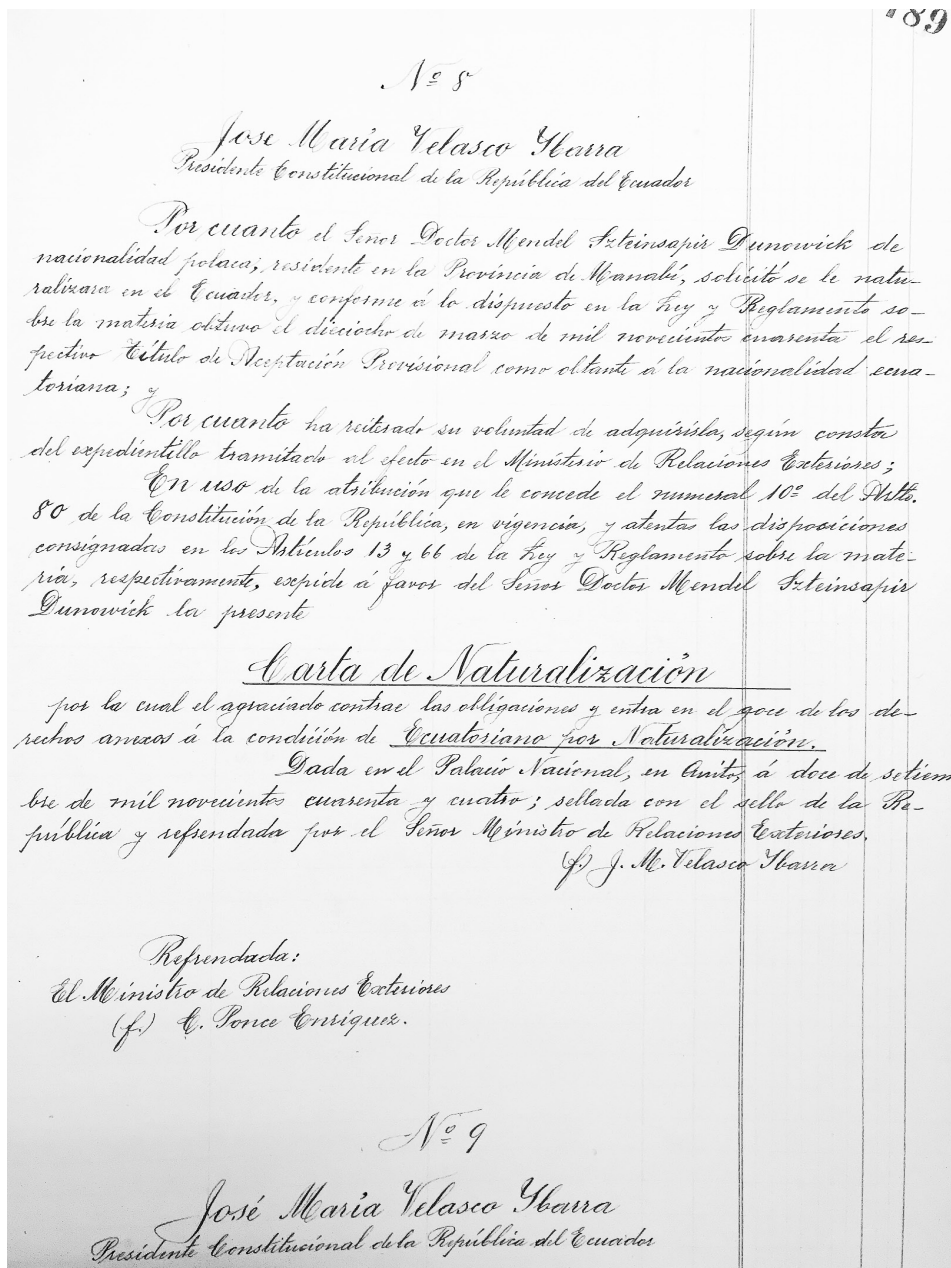 189
Nº 8
José María Velasco Ybarra
Presidente Constitucional de la República del Ecuador
Por cuanto el Señor Doctor Mendel Szteinsapir Dunowick de
nacionalidad polaca, residente en la Provincia de Manabí, solicitó se le natu-
ralizara en el Ecuador, y conforme á lo dispuesto en la Ley y Reglamento so-
bre la materia obtuvo el dieciocho de marzo de mil novecientos cuarenta el res-
pectivo título de Aceptación Provisional como obtante á la nacionalidad ecua-
toriana; y
Por cuanto ha reiterado su voluntad de adquirirla, según consta
del expedientillo tramitado al efecto en el Ministerio de Relaciones Exteriores;
En uso de la atribución que le concede el numeral 10º del Artto.
80 de la Constitución de la República, en vigencia, y atentas las disposiciones
consignadas en los Artículos 13 y 66 de la Ley y Reglamento sobre la mate-
ria, respectivamente, expide á favor del Señor Doctor Mendel Szteinsapir
Dunowick la presente
Carta de Naturalización
por la cual el agraciado contrae las obligaciones y entra en el goce de los de-
rechos anexos á la condición de Ecuatoriano por Naturalización.
Dada en el Palacio Nacional, en Quito, á doce de setiem
bre de mil novecientos cuarenta y cuatro; sellada con el sello de la Re-
pública y refrendada por el Señor Ministro de Relaciones Exteriores.
(f.) J. M. Velasco Ybarra
Refrendada:
El Ministro de Relaciones Exteriores
(f.) C. Ponce Enríquez.
Nº 9
José María Velasco Ybarra
Presidente Constitucional de la República del Ecuador